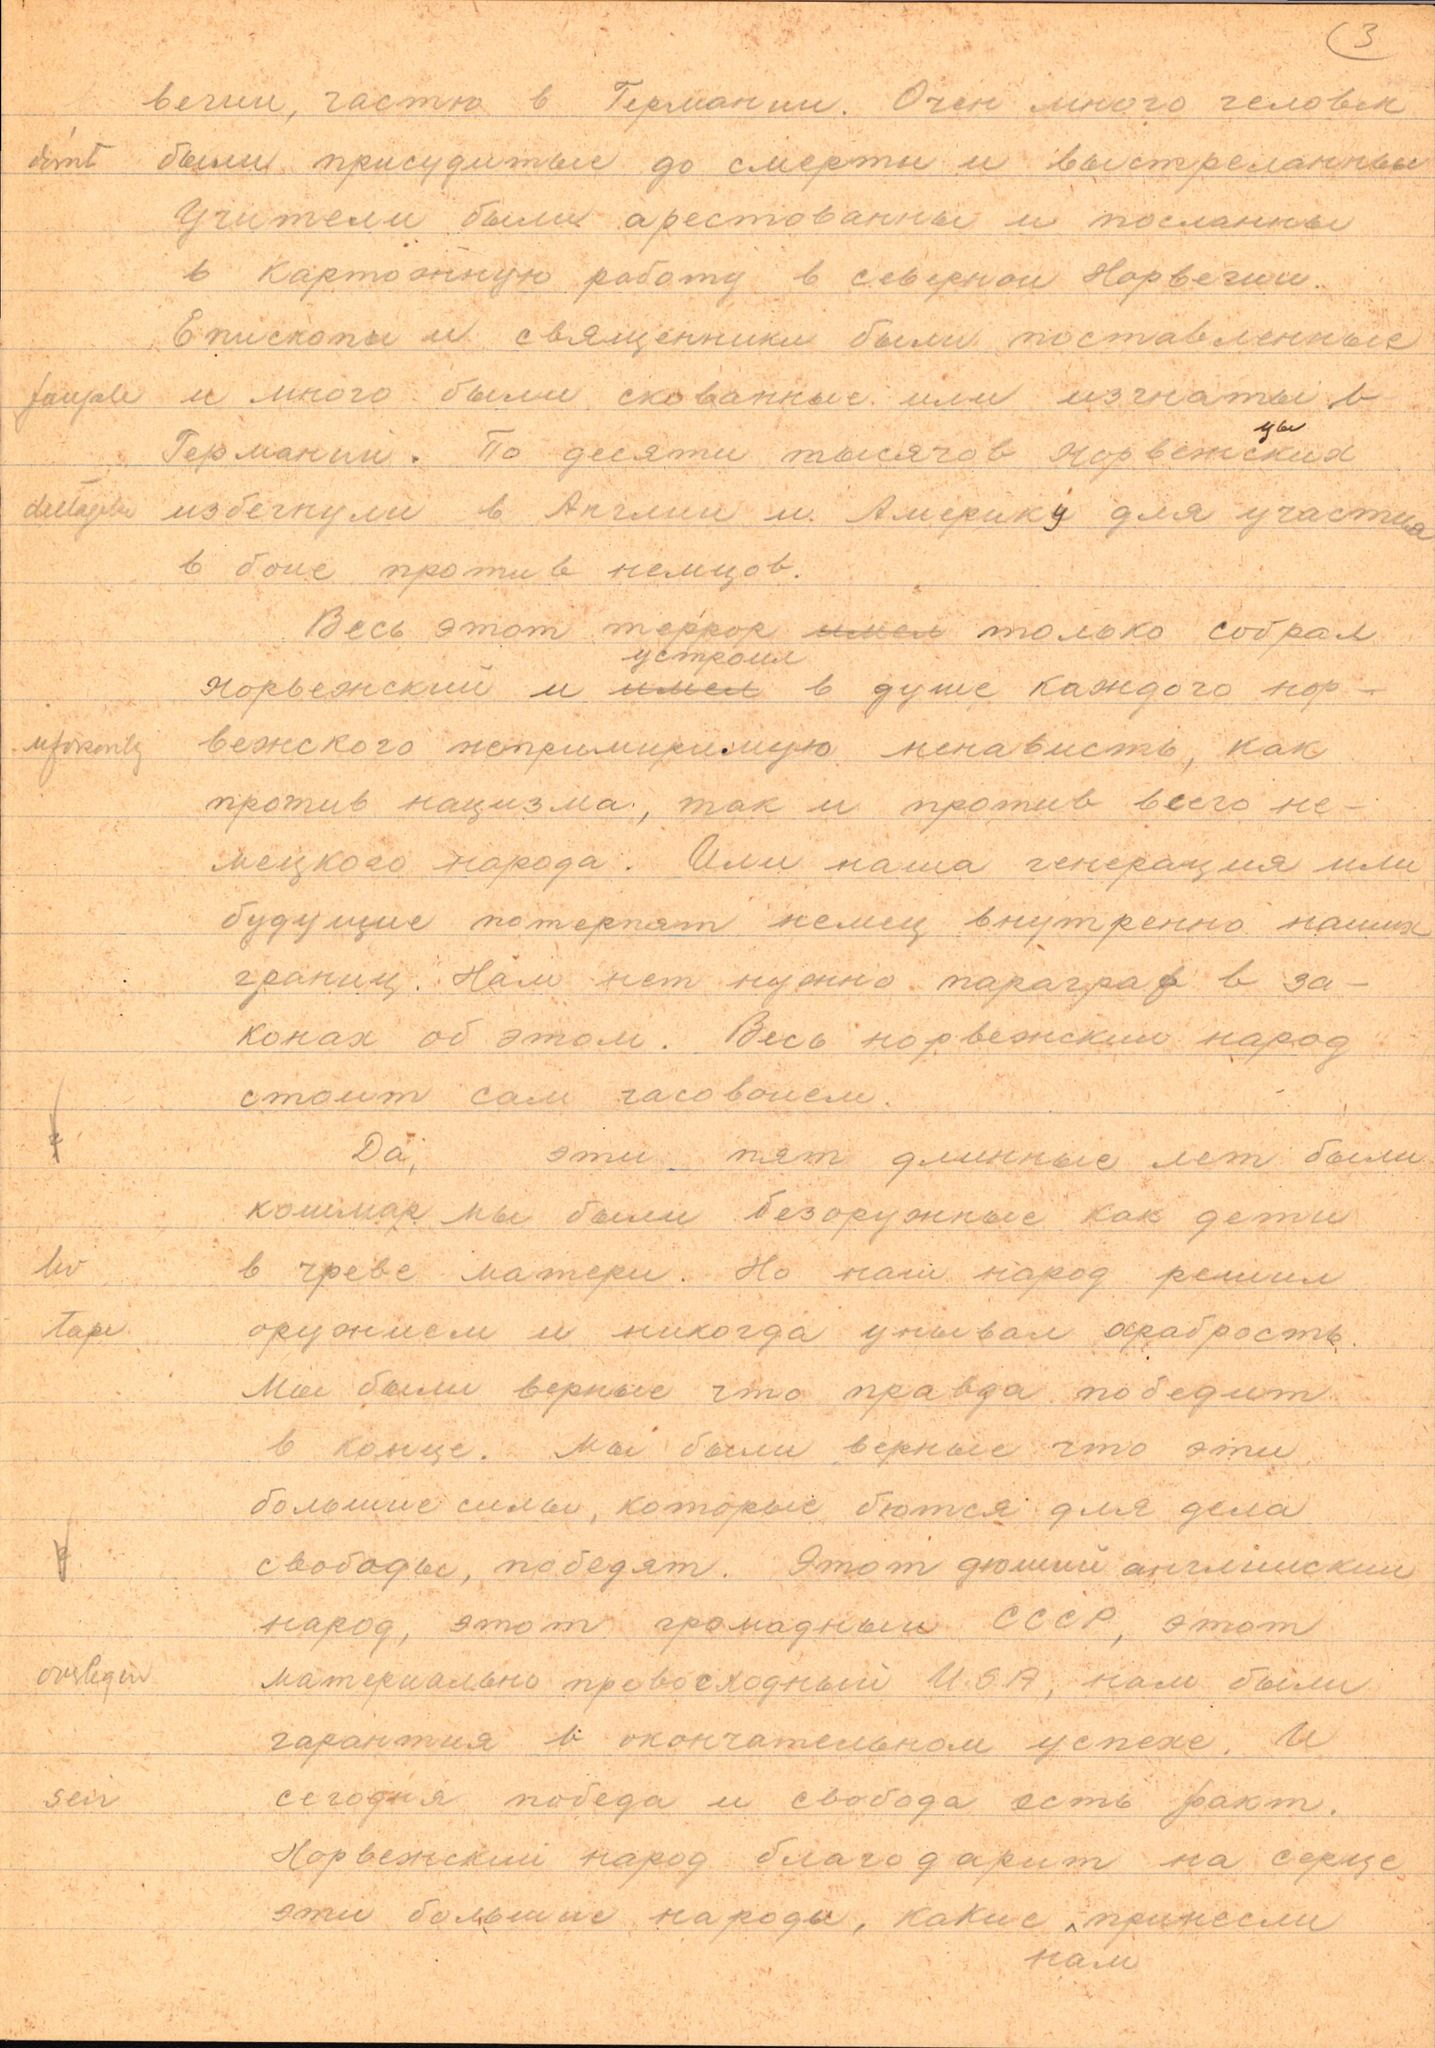 3
вегии, частю в Германии. Очен много человек
dömt были присудитые до смерти и выстреланные
Учители были арестованны и посланны
в картожную работу в северной Норвегии.
Епископы и священники были поставленные
и много были скованные или изгнаты в
Германий. По десяти тысячов норвежских
цы
deltagelse избегнули в Англии и Америку для участия
в боие против немцов.
Весь этот террор имел только собрал
устроил
норвежский и имел в душе каждого нор-
uforsonlig вежского непримиримую ненависть, как
против нацизма, так и против всего не-
мецкого народа. Или наша генерация или
будущие потерпят немец внутренно наших
границ. Нам нет нужно параграф в за-
конах об этом. Весь норвежский народ
стоит сам часовоием.
Да, эти пят длинные лет были
кошмар мы были безоружные как дети
liv в чреве матери. Но наш народ решил
tape оружием и никогда унывал храбрость.
Мы были верные что правда победит
в конце. Мы были верные что эти
большие силы, которые бются для дела
свободы, победят. Этот дюший английский
народ, этот громадный СССР, этот
overlegen материально превосходный U.S.A, нам были
гарантия в окончательном успехе. И
seir сегодня победа и свобода есть факт.
Норвежский народ благодарит на серце
эти большие народы, какие принесли
нам